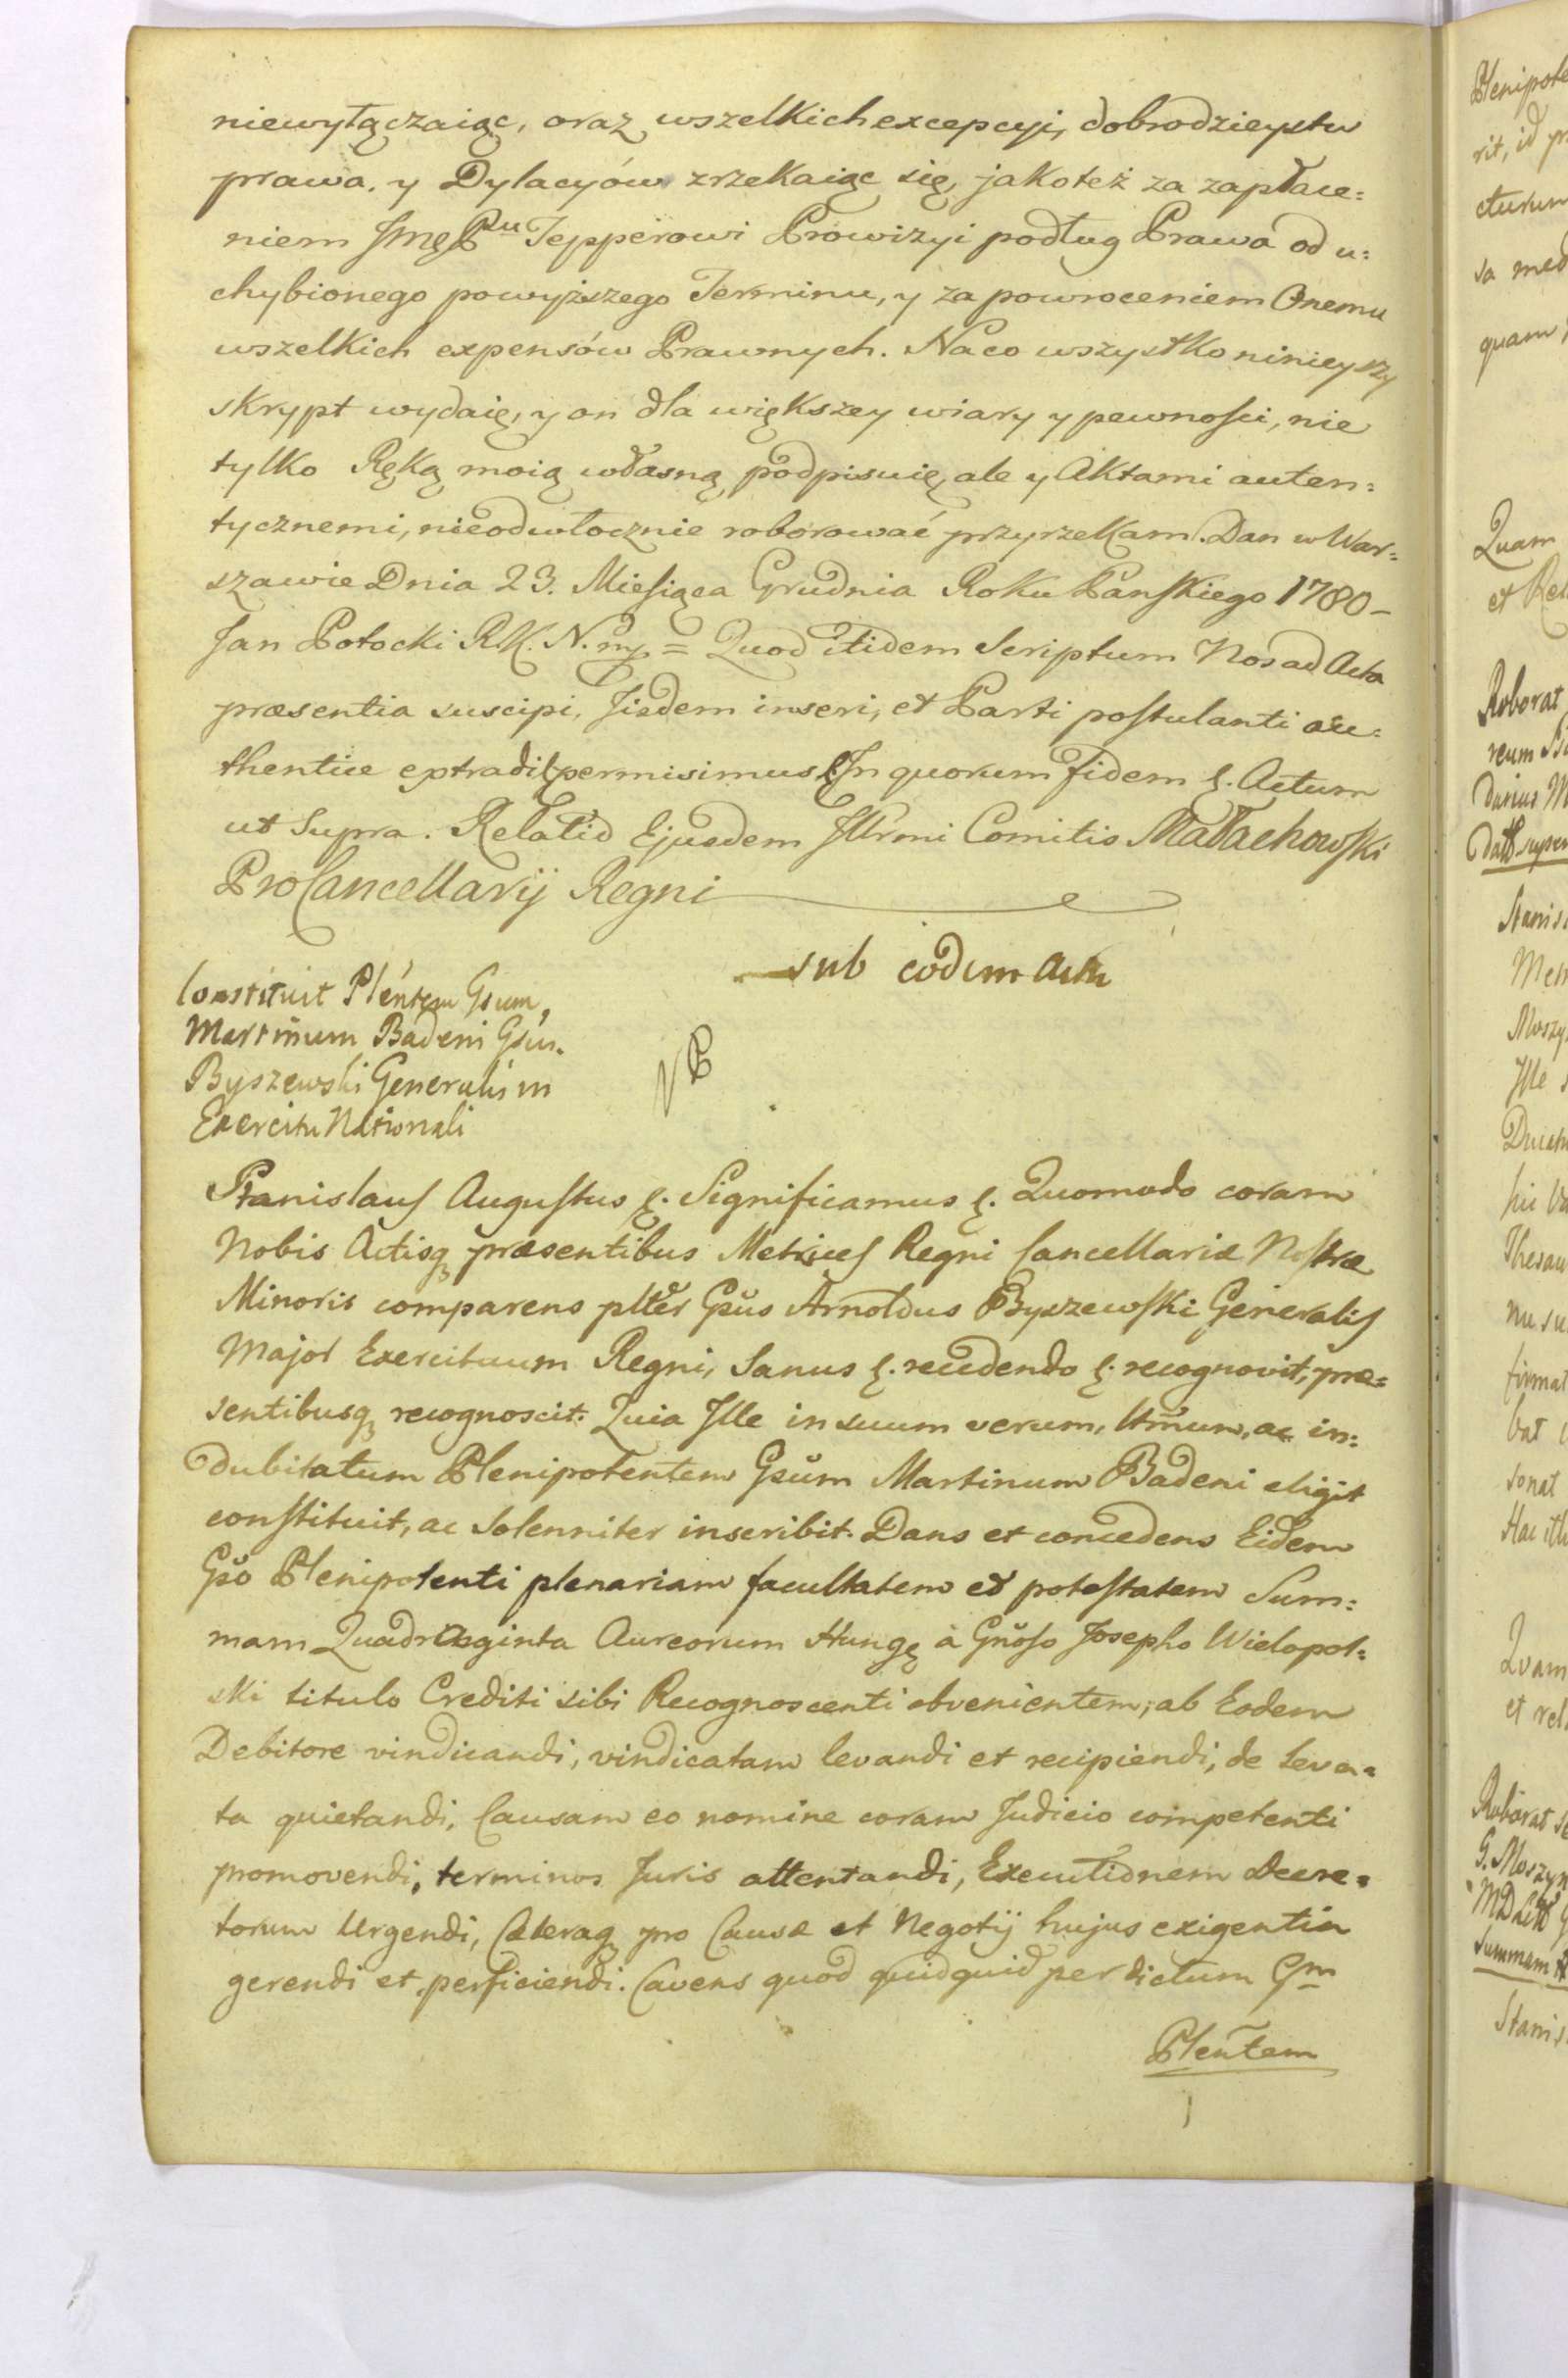 niewyłączaiąc, oraz wszelkich excepcyi, dobrodzieystw
prawa, y Dylacyów zrzekaiąc się, jakoteż za zapłace=
niem Jmę Pnu Tepperowi Prowizyi podług Prawa od u=
chybionego powyższego Terminu, y za powroceniem Onemu
wszelkich expensów Prawnych. Na co wszystko ninieyszy
skrypt wydaię, y on dla większey wiary y pewności, nie
tylko Ręką moią własną podpisuię, ale y Aktami auten=
tycznemi, nieodwłocznie roborować przyrzekam. Dan w War=
szawie Dnia 23. Miesiąca Grudnia Roku Panskiego 1780 -
Jan Potocki R.K.N. mp = Quod itidem Scriptum Nos ad Acta
præsentia suscipi, Jisdem inseri, et Parti postulanti au=
thentice extradi permisimus. In quorum fidem &. Actum
ut Supra. Relatio Ejusdem Illrmi Comitis Małachowski
ProCancellarij Regni
sub eodem Actu
Constituit Pléntem Gsum,
Martinum Badeni Gsus.
Byszewski Generalis in
Exercitu Nationali
NB
Stanislaus Augustus &. Significamus &. Quomodo coram
Nobis Actisq præsentibus Metrices Regni Cancellariæ Nostræ
Minoris comparens plter Gsus Arnoldus Byszewski Generalis
Major Exercituum Regni, Sanus &. recedendo &. recognovit, præ=
sentibusq recognoscit. Quia Ille in suum verum, ltmum, ac in=
dubitatum Plenipotentem Gsum Martinum Badeni eligit
constituit, ac Solenniter inscribit. Dans et concedens Eidem
Gso Plenipotenti plenariam facultatem et potestatem Sum=
mam Quadraginta Aureorum Hung à Gnoso Josepho Wielopol=
ski titulo Crediti sibi Recognoscenti obvenientem, ab Eodem
Debitore vindicandi, vindicatam levandi et recipiendi, de leva=
ta quietandi, Causam eo nomine coram Judicio competenti
promovendi, terminos Juris attentandi, Executionem Decre=
torum Urgendi, Cæteraq pro Causæ et Negotij hujus exigentia
gerendi et perficiendi. Cavens quod quidquid per dictum Gm
Plentem